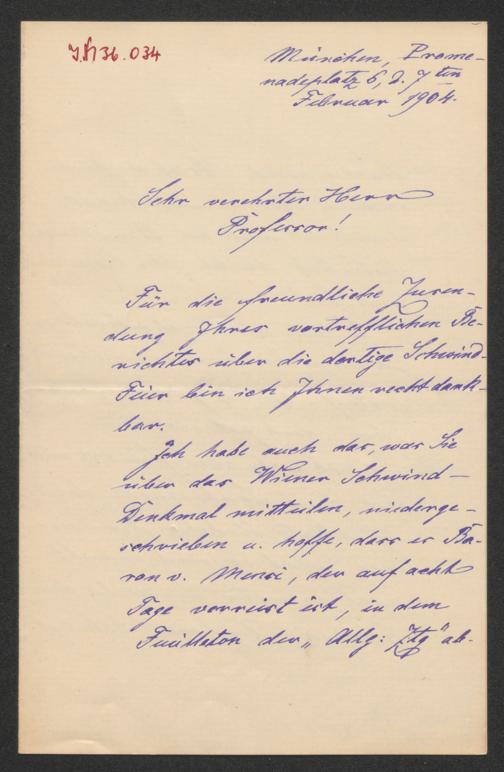 J.N 136.034
München, Prome-
nadeplatz 6, d. 7ten
Februar 1904.
Sehr verehrter Herr
Professor!
Für die freundliche Zusen-
dung Ihres vortrefflichen Be-
richtes über die dortige Schwind-
Feier bin ich Ihnen recht dank-
bar.
Ich habe auch das, was Sie
über das Wiener Schwind-
Denkmal mitteilen, niederge-
schrieben u. hoffe, dass es Ba-
ron v. Mensi, der auf acht
Tage verreist ist, in dem
Feuilleton der „Allg: Ztg" ab-